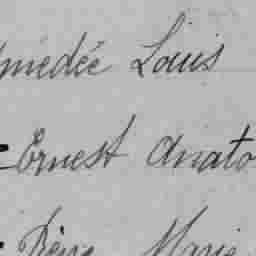 médée Louis
Ernest Anato
Marie